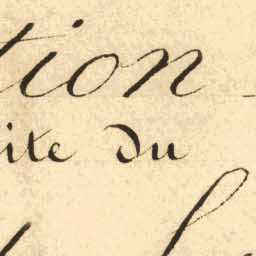 tion
ite du